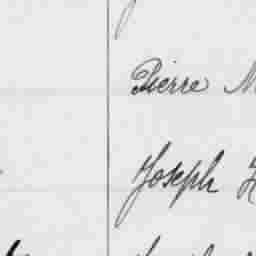 Pierre M
Joseph H